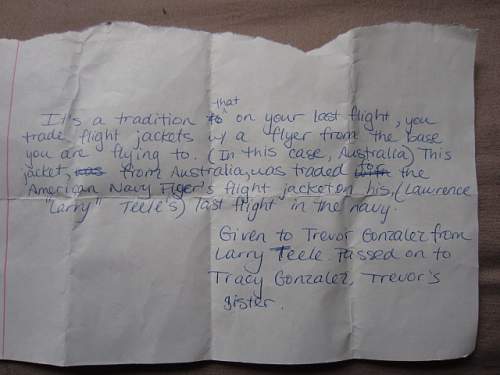 It's a tradition that on your last flight, you
trade flight jackets w/ a flyer from the base
you are flying to. (In this case, Australia) This
jacket, from Australia, was traded for the
American Navy Figer's flight jacket on his, (Lawrence
"Larry" Teele's) last flight in the navy.
Given to Trevor Gonzalez from
Larry Teele. Passed on to
Tracy Gonzalez, Trevor's
sister.